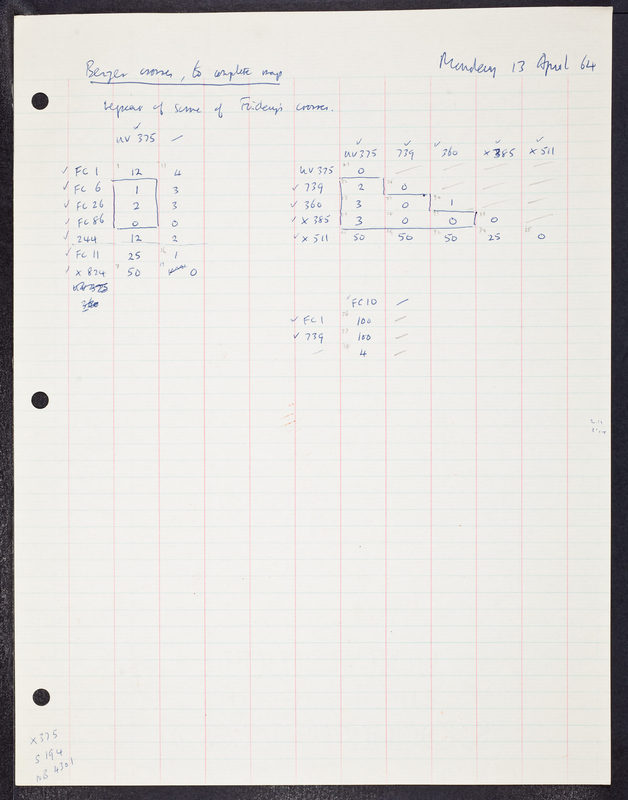 Monday 13 April 64
Berger crosses, to complete map
repeat of some of Friday's crosses.
✓ UV 375 —
✓ FC 1 12 4
✓ FC 6 1 3
✓ FC 26 2 3
✓ FC 86 0 0
✓ 244 12 2
✓ FC 11 25 1
✓ X 824 50 0
UV 375
360
✓ UV375 ✓ 739 ✓ 360 ✓ X 385 ✓ X 511
UV 375 0
✓ 739 2 0
✓ 360 3 0 1
✓ X 385 3 0 0 0
✓ X 511 50 50 50 25 0
✓ FC 10 —
✓ FC 1 100 —
✓ 739 100 —
— 4 —
X375
S 194
NB 4301